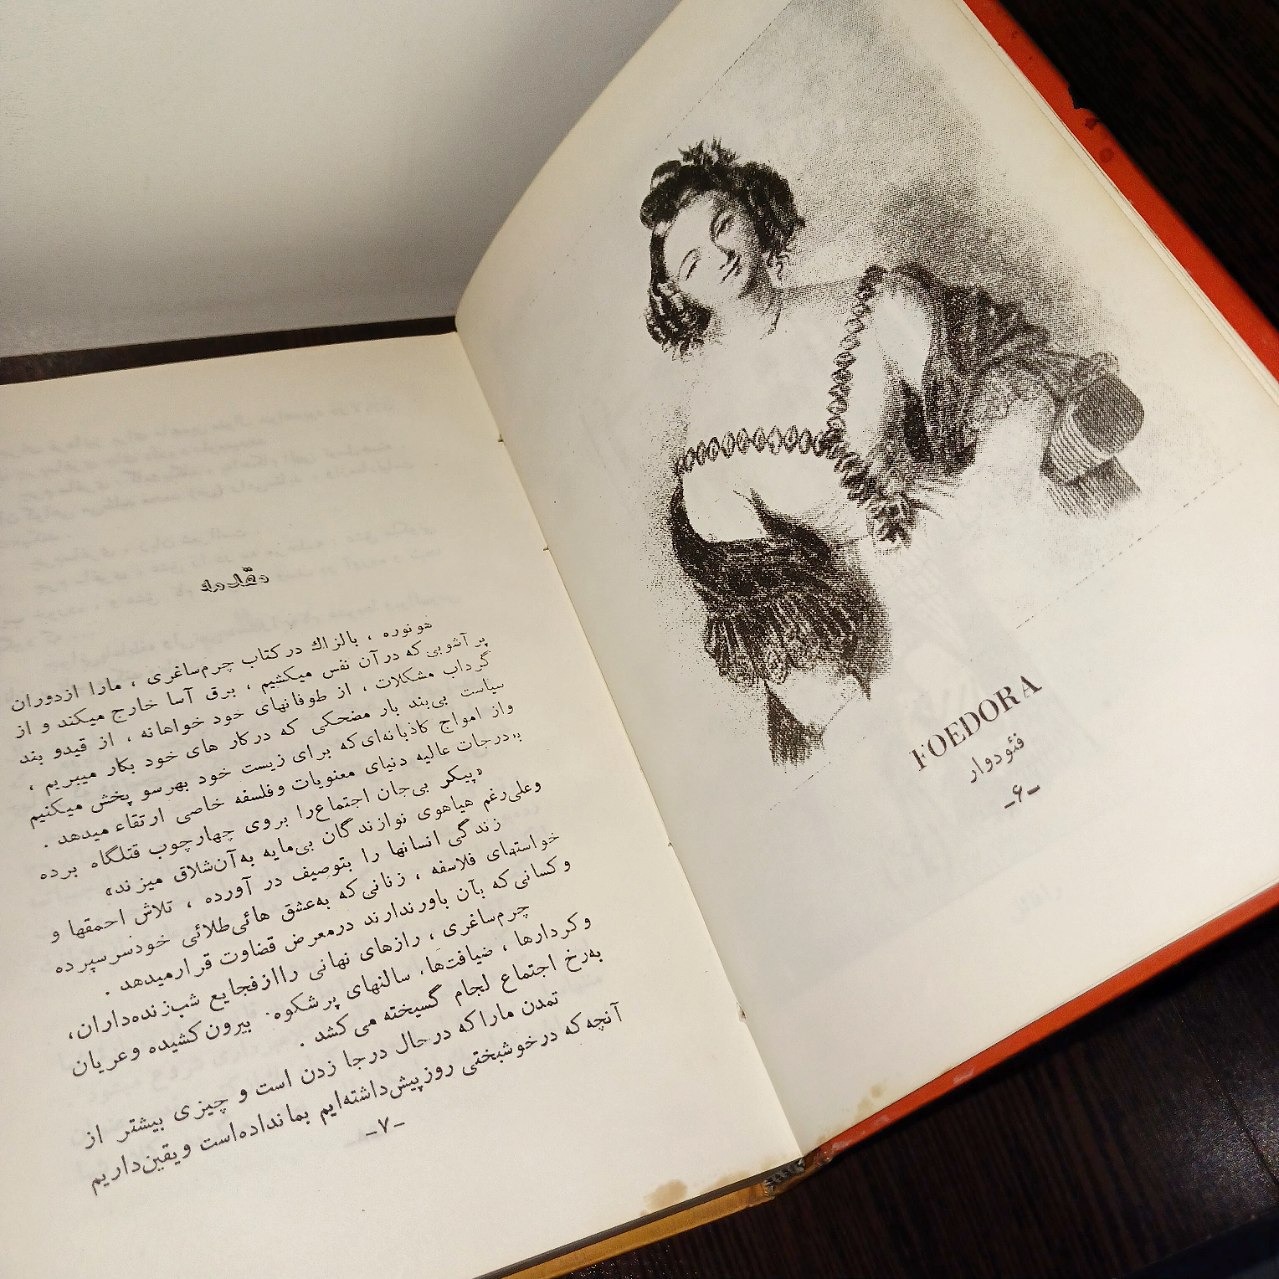 FOEDORA
فئودوار
-۶-
مقدمه
هونوره ، بالزاك در کتاب چرم‌ساغری ، مارا ازدوران
پر آشوبی که در آن نفس میکشیم ، برق آسا خارج میکند و از
گرداب مشکلات ، از طوفانهای خود خواهانه ، از قیدو بند
سیاست بی‌بند بار مضحکی که درکار های خود بکار میبریم ،
واز امواج کاذبانه‌ای‌که برای زیست خود بهرسو پخش میکنیم
بدرجات عالیه دنیای معنویات وفلسفه خاصی ارتقاء میدهد .
«پیکر بی‌جان اجتماع‌را بروی چهارچوب قتلگاه برده
وعلی‌رغم هیاهوی نوازندگان بی‌مایه به‌آن‌شلاق میزند»
زندگی انسانها را بتوصیف در آورده ، تلاش احمقها و
خواستهای فلاسفه ، زنانی‌که به‌عشق هائی‌طلائی خودسرسپرده
وکسانی‌که بآن باورندارند درمعرض قضاوت قرارمیدهد .
چرم‌ساغری ، رازهای نهانی راازفجایع شب‌زنده‌داران،
وکردارها ، ضیافت‌ها، سالنهای پرشکوه. بیرون‌کشیده وعریان
به‌رخ اجتماع لجام گسیخته می‌کشد .
تمدن ماراکه درحال درجا زدن است و چیزی بیشتر از
آنچه‌که درخوشبختی روزپیش‌داشته‌ایم بمانداده‌است ویقین‌داریم
-۷-